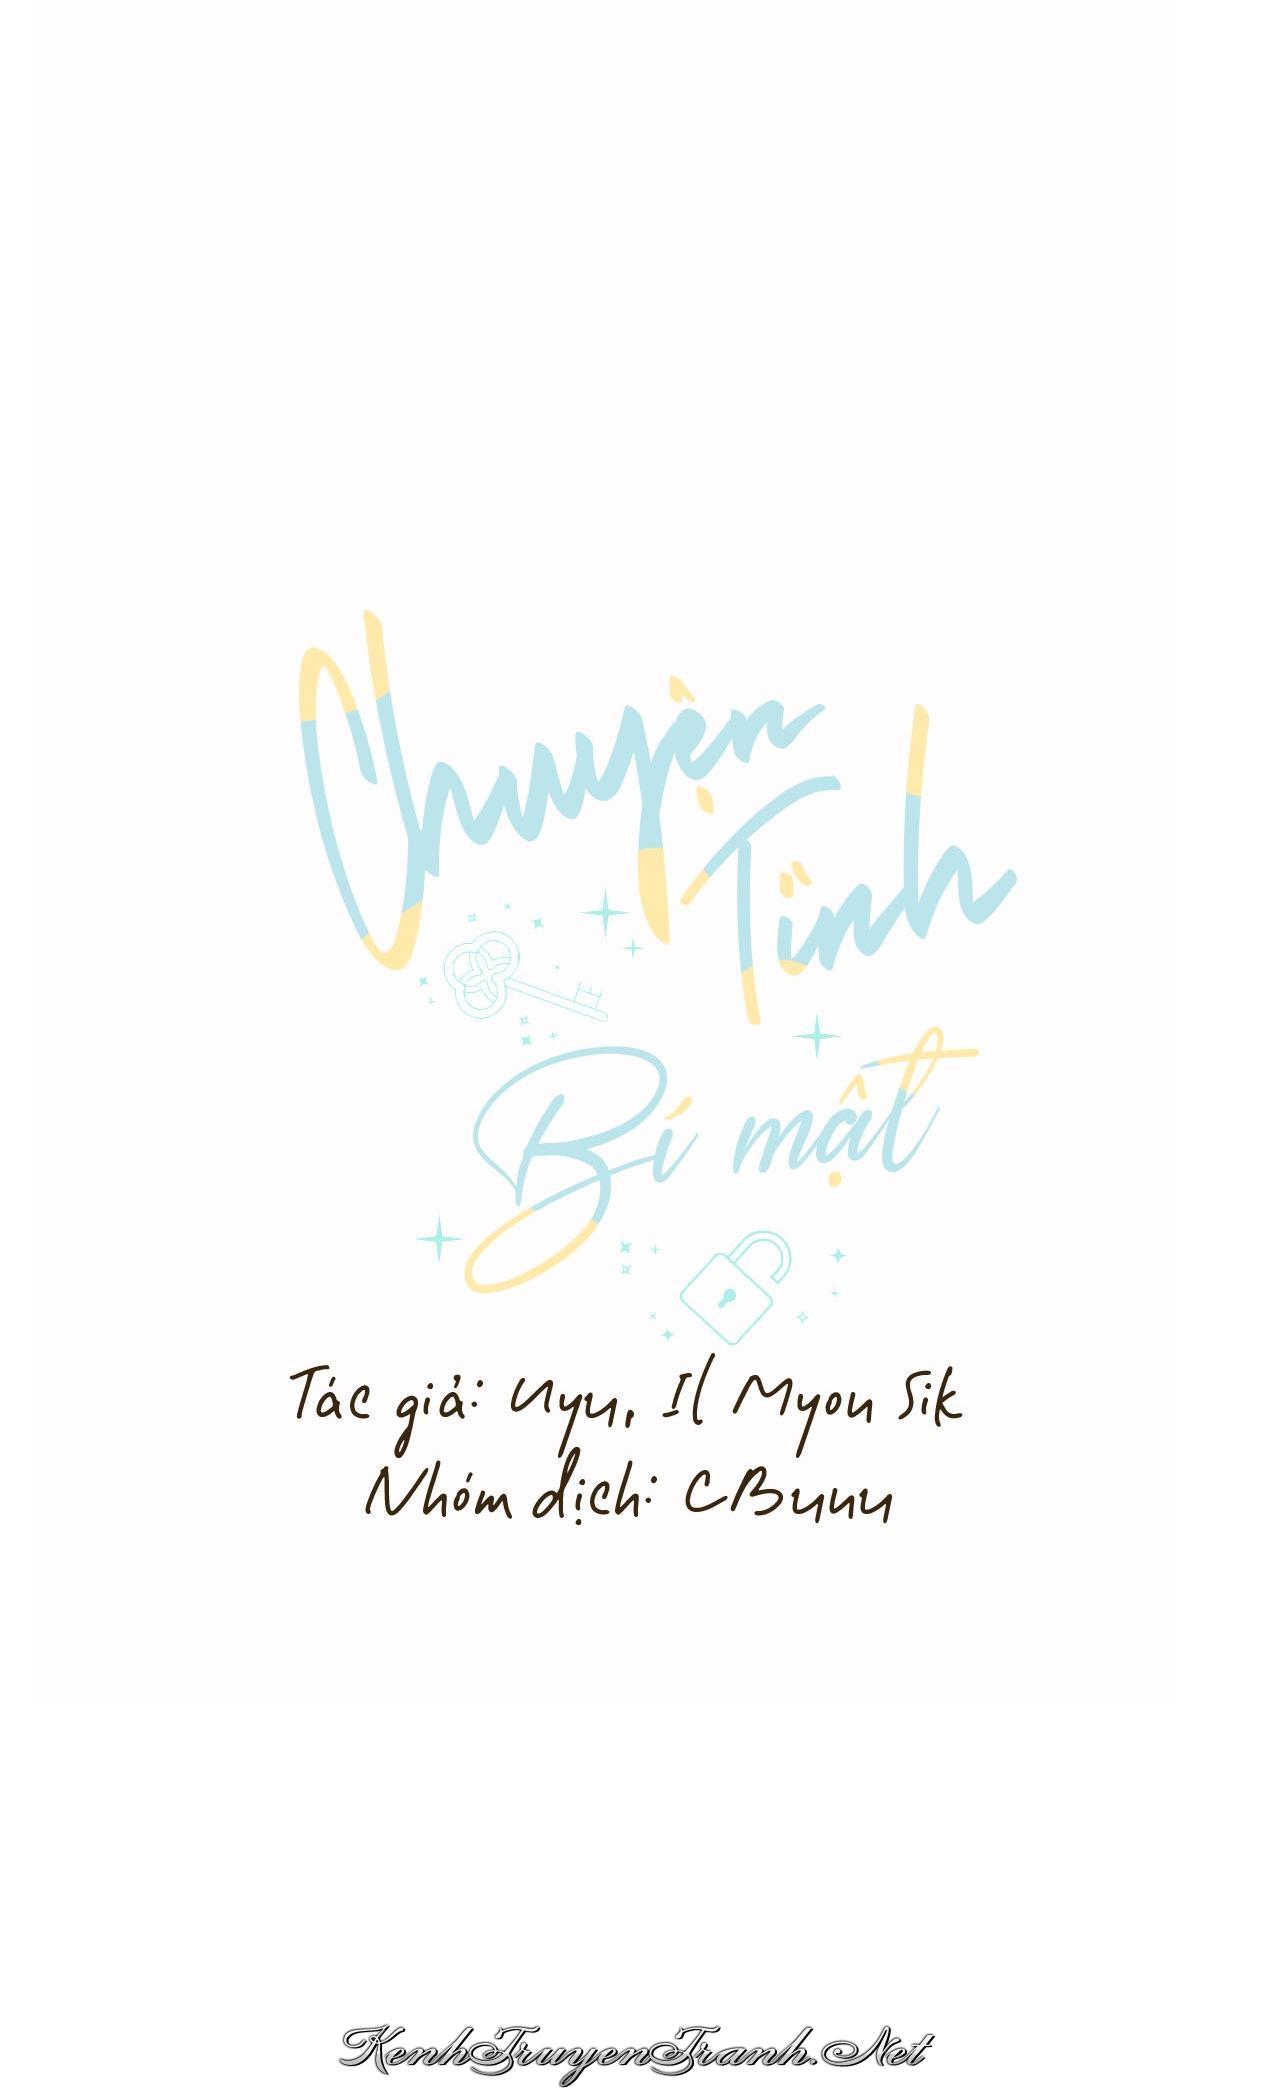 Chuyện
Tình
Bí mật
Tác giả: Uyu, Il Myou Sik
Nhóm dịch: CBunu
KenhTruyenTranh.Net